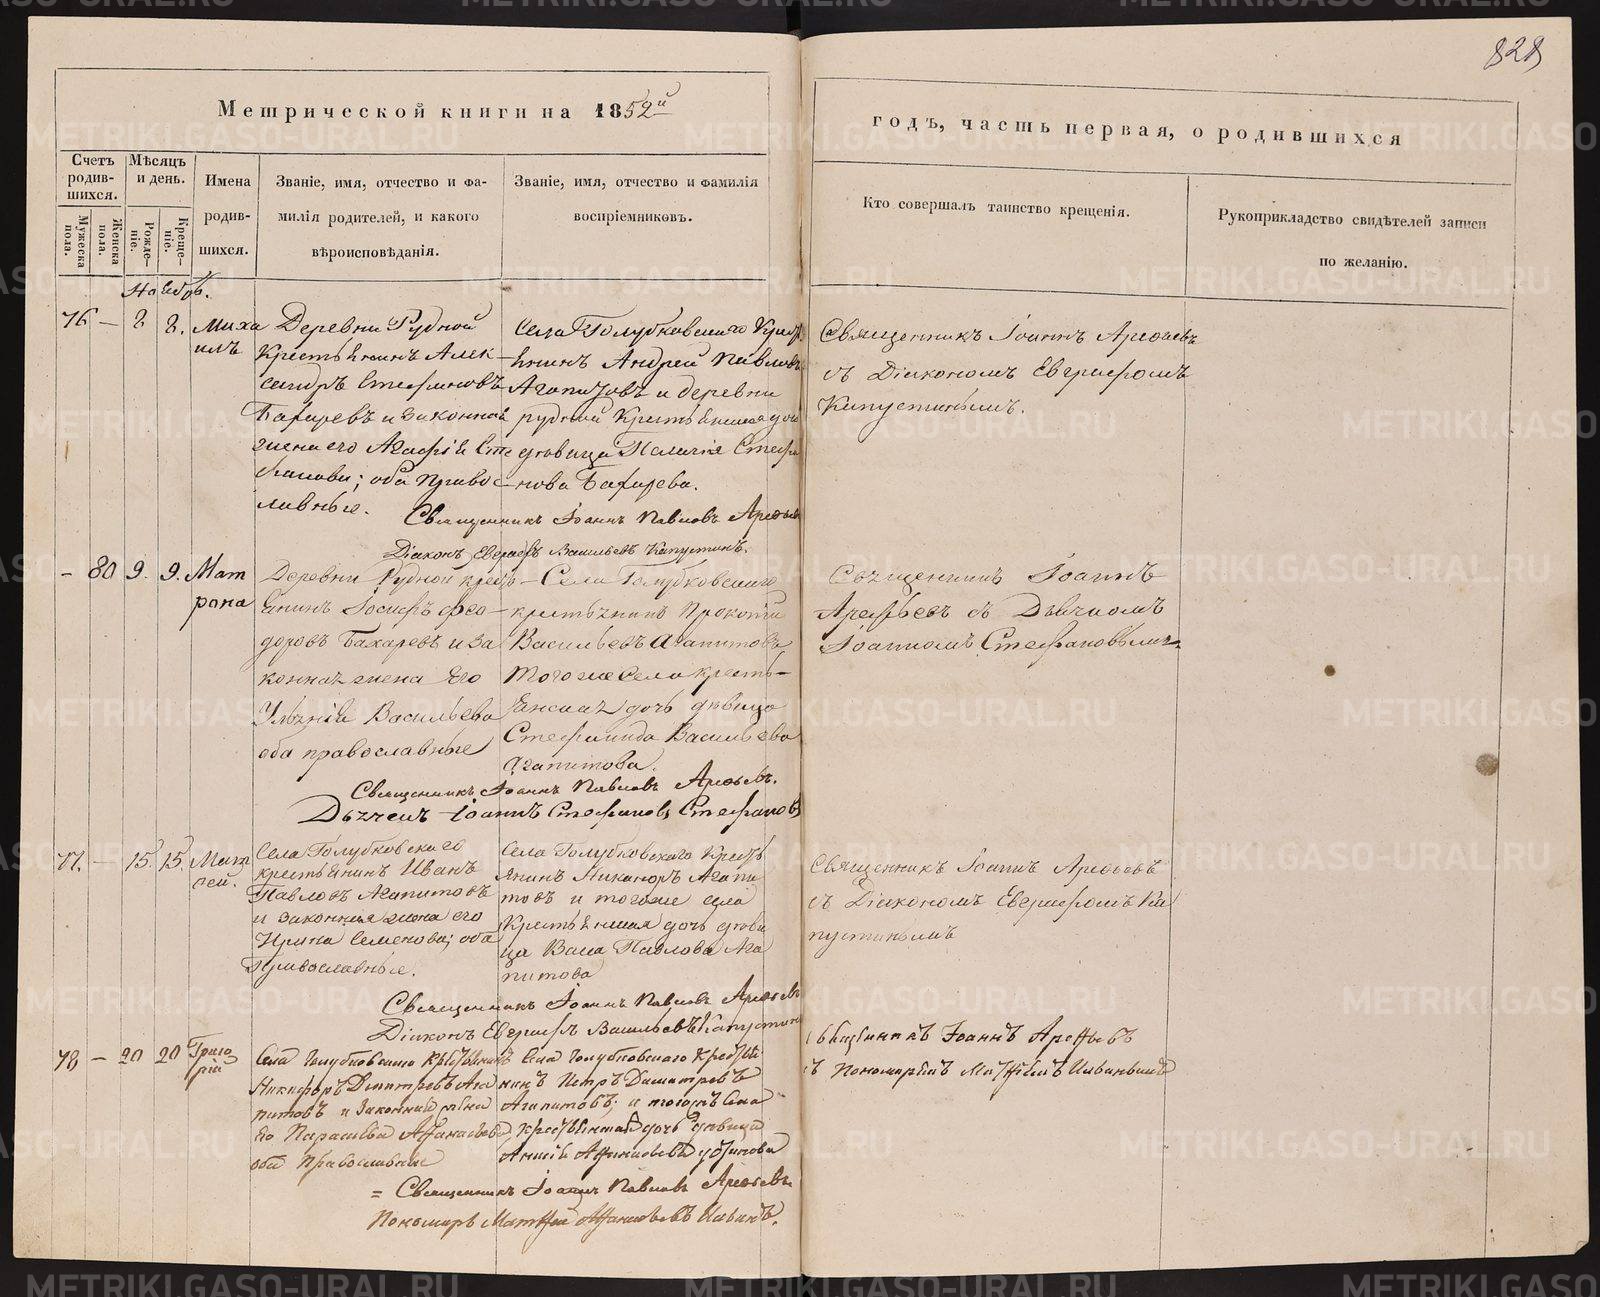 828
Метрической книги на 1852й
годъ, часть первая, о родившихся
Счетъ родив-шихся.
Мужеска пола.
Женска пола.
Мѣсяцъ и день.
Рожде-ніе.
Креще-ніе.
Имена
родив-
шихся.
Званіе, имя, отчество и фа-
милія родителей, и какого
вѣроисповѣданія.
Званіе, имя, отчество и фамилія
воспріемниковъ.
Кто совершалъ таинство крещенія.
Рукоприкладство свидѣтелей записи
по желанію.
Ноябрь.
76 — 8 8. Миха
илъ
Деревни Рудной
Крестьянинъ Алек-
сандръ Стефановъ
Бахаревъ и законная
жена его Агафія Сте
фанова; оба Правос-
лавные.
Села Голубковскаго Крест
янинъ Андрей Павловъ
Агапитовъ и деревни
рудной Крестьянская доч
дѣвица Стефа
нова Бахарева.
Священникъ Іоаннъ Арефьевъ
съ Діакономъ Евграфомъ
Капустинымъ.
Священникъ Іоаннъ Павловъ Арефьевъ
Діаконъ Евграфъ Васильевъ Капустинъ.
— 80 9. 9. Мат
рона
Деревни Рудной крест-
янинъ Іосифъ Фео-
доровъ Бахаревъ и за
конная жена Его
Васильева
оба православные
Села Голубковскаго
крестьянинъ Прокопій
Васильевъ Агапитовъ
Того же Села кресть-
янская дочь дѣвица
Стефанида Васильева
Агапитова.
Священникъ Іоаннъ
Арефьевъ съ Дьячкомъ
Іоанномъ Стефановымъ
Священникъ Іоаннъ Павловъ Арефьевъ.
Дьячекъ Іоаннъ Стефановъ Стефановъ
77. — 15. 15. Мат
фей.
Села Голубковскаго
крестьянинъ Иванъ
Павловъ Агапитовъ
и законная жена его
Ирина Семенова; оба
Православные.
Села Голубковскаго Кресть
янинъ Никаноръ Агапи
товъ и тогоже села
Крестьянская дочь дѣви
ца Васа Павлова Ага
питова
Священникъ Іоаннъ Арефьевъ
съ Діакономъ Евграфомъ Ка
пустинымъ
Священникъ Іоаннъ Павловъ Арефьевъ
Діаконъ Евграфъ Васильевъ Капустинъ
78 — 20 20 Григо
рій
Села Голубковскаго крестьянинъ
Никифоръ Димитревъ Ага
питовъ и Законная жена
Его Параскева Афанасьева
оба Православные
Села Голубковскаго Крестья
нинъ Петръ Димитревъ
Агапитовъ; и тогожъ Села
Крестьянская дочь дѣвица
Священникъ Іоаннъ Арефьевъ
съ Пономаремъ Матфеемъ
= Священникъ Іоаннъ Павловъ Арефьевъ.
Пономарь Матфей Афанасьевъ
METRIKI.GASO-URAL.RU